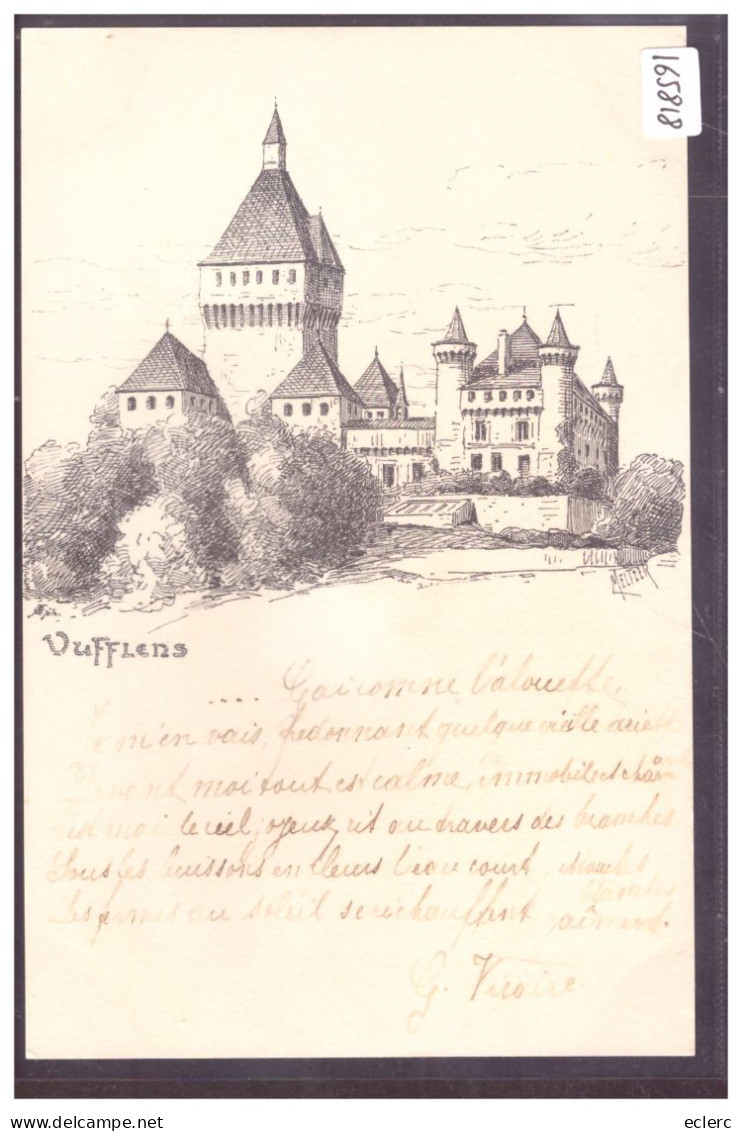 165818
MELTZER
Vufflens
.... Gai comme l'alouette,
Je m'en vais, fredonnant quelque vieille ariette
Devant moi tout est calme, immobile et charm
le ciel joyeux rit au travers des branches
Sous les buissons en fleurs l'eau court,
blanches
Les au soleil se réchauffent aiment.
G. Vicaire
eclerc